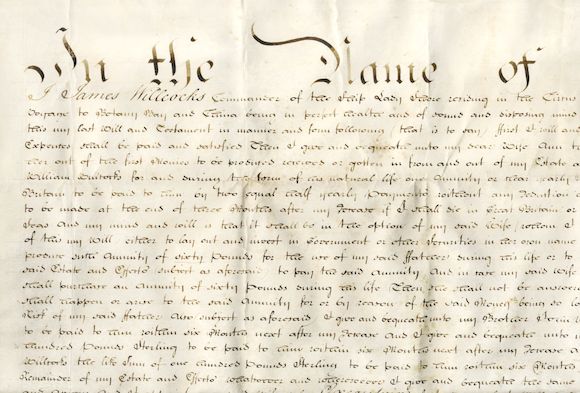 In the Name of
I James Willcocks Commander of the Ship Lady Shore residing in the
Voyage to Botany Bay and China being in perfect health and of sound and disposing mind
this my last Will and Testament in manner and form following (that is to say) First I will and
Expences shall be paid and satisfied Then I give and bequeath unto my dear Wife Ann
out of the first Monies to be received or gotten in from and out of my Estate
William Willcocks for and during the term of his natural life one Annuity or clear yearly
Britain to be paid to him by two equal half yearly Payments without any Deduction
to be made at the end of three Months after my Decease if I shall die in Great Britain or
Seas And my mind and will is that it shall be in the option of my said Wife whom I
of this my Will either to lay out and invest in Government or other Securities in her own name
produce such Annuity of sixty Pounds for the use of my said ffather during his life or to
said Estate and Effects subject as aforesaid to pay the said Annuity And in case my said Wife
shall purchase an Annuity of sixty Pounds during his life Then she shall not be
shall happen or arise to the said Annuity for or by reason of the said Money being so
Risk of my said ffather Also subject as aforesaid I give and bequeath unto my Brother
to be paid to him within six Months next after my Decease And I give and bequeath unto
hundred Pounds Sterling to be paid to him within six Months next after my Decease
Willcocks the like Sum of one hundred Pounds Sterling to be paid to him within six Months
Remainder of my Estate and Effects whatsoever and wheresoever I give and bequeath the same